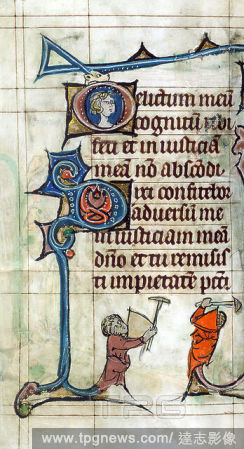 Delictum meū
cognitū tibi
feci et in iusticia
meā nō abscōdi
Dixi confitebor
aduersum me
in iusticiam meā
dño et tu remisis
ti impietatē pcti
TPG
www.tpgnews.com/ 達志影像